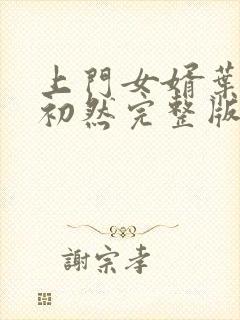 上門女婿葉
初然完整版
謝宗孝